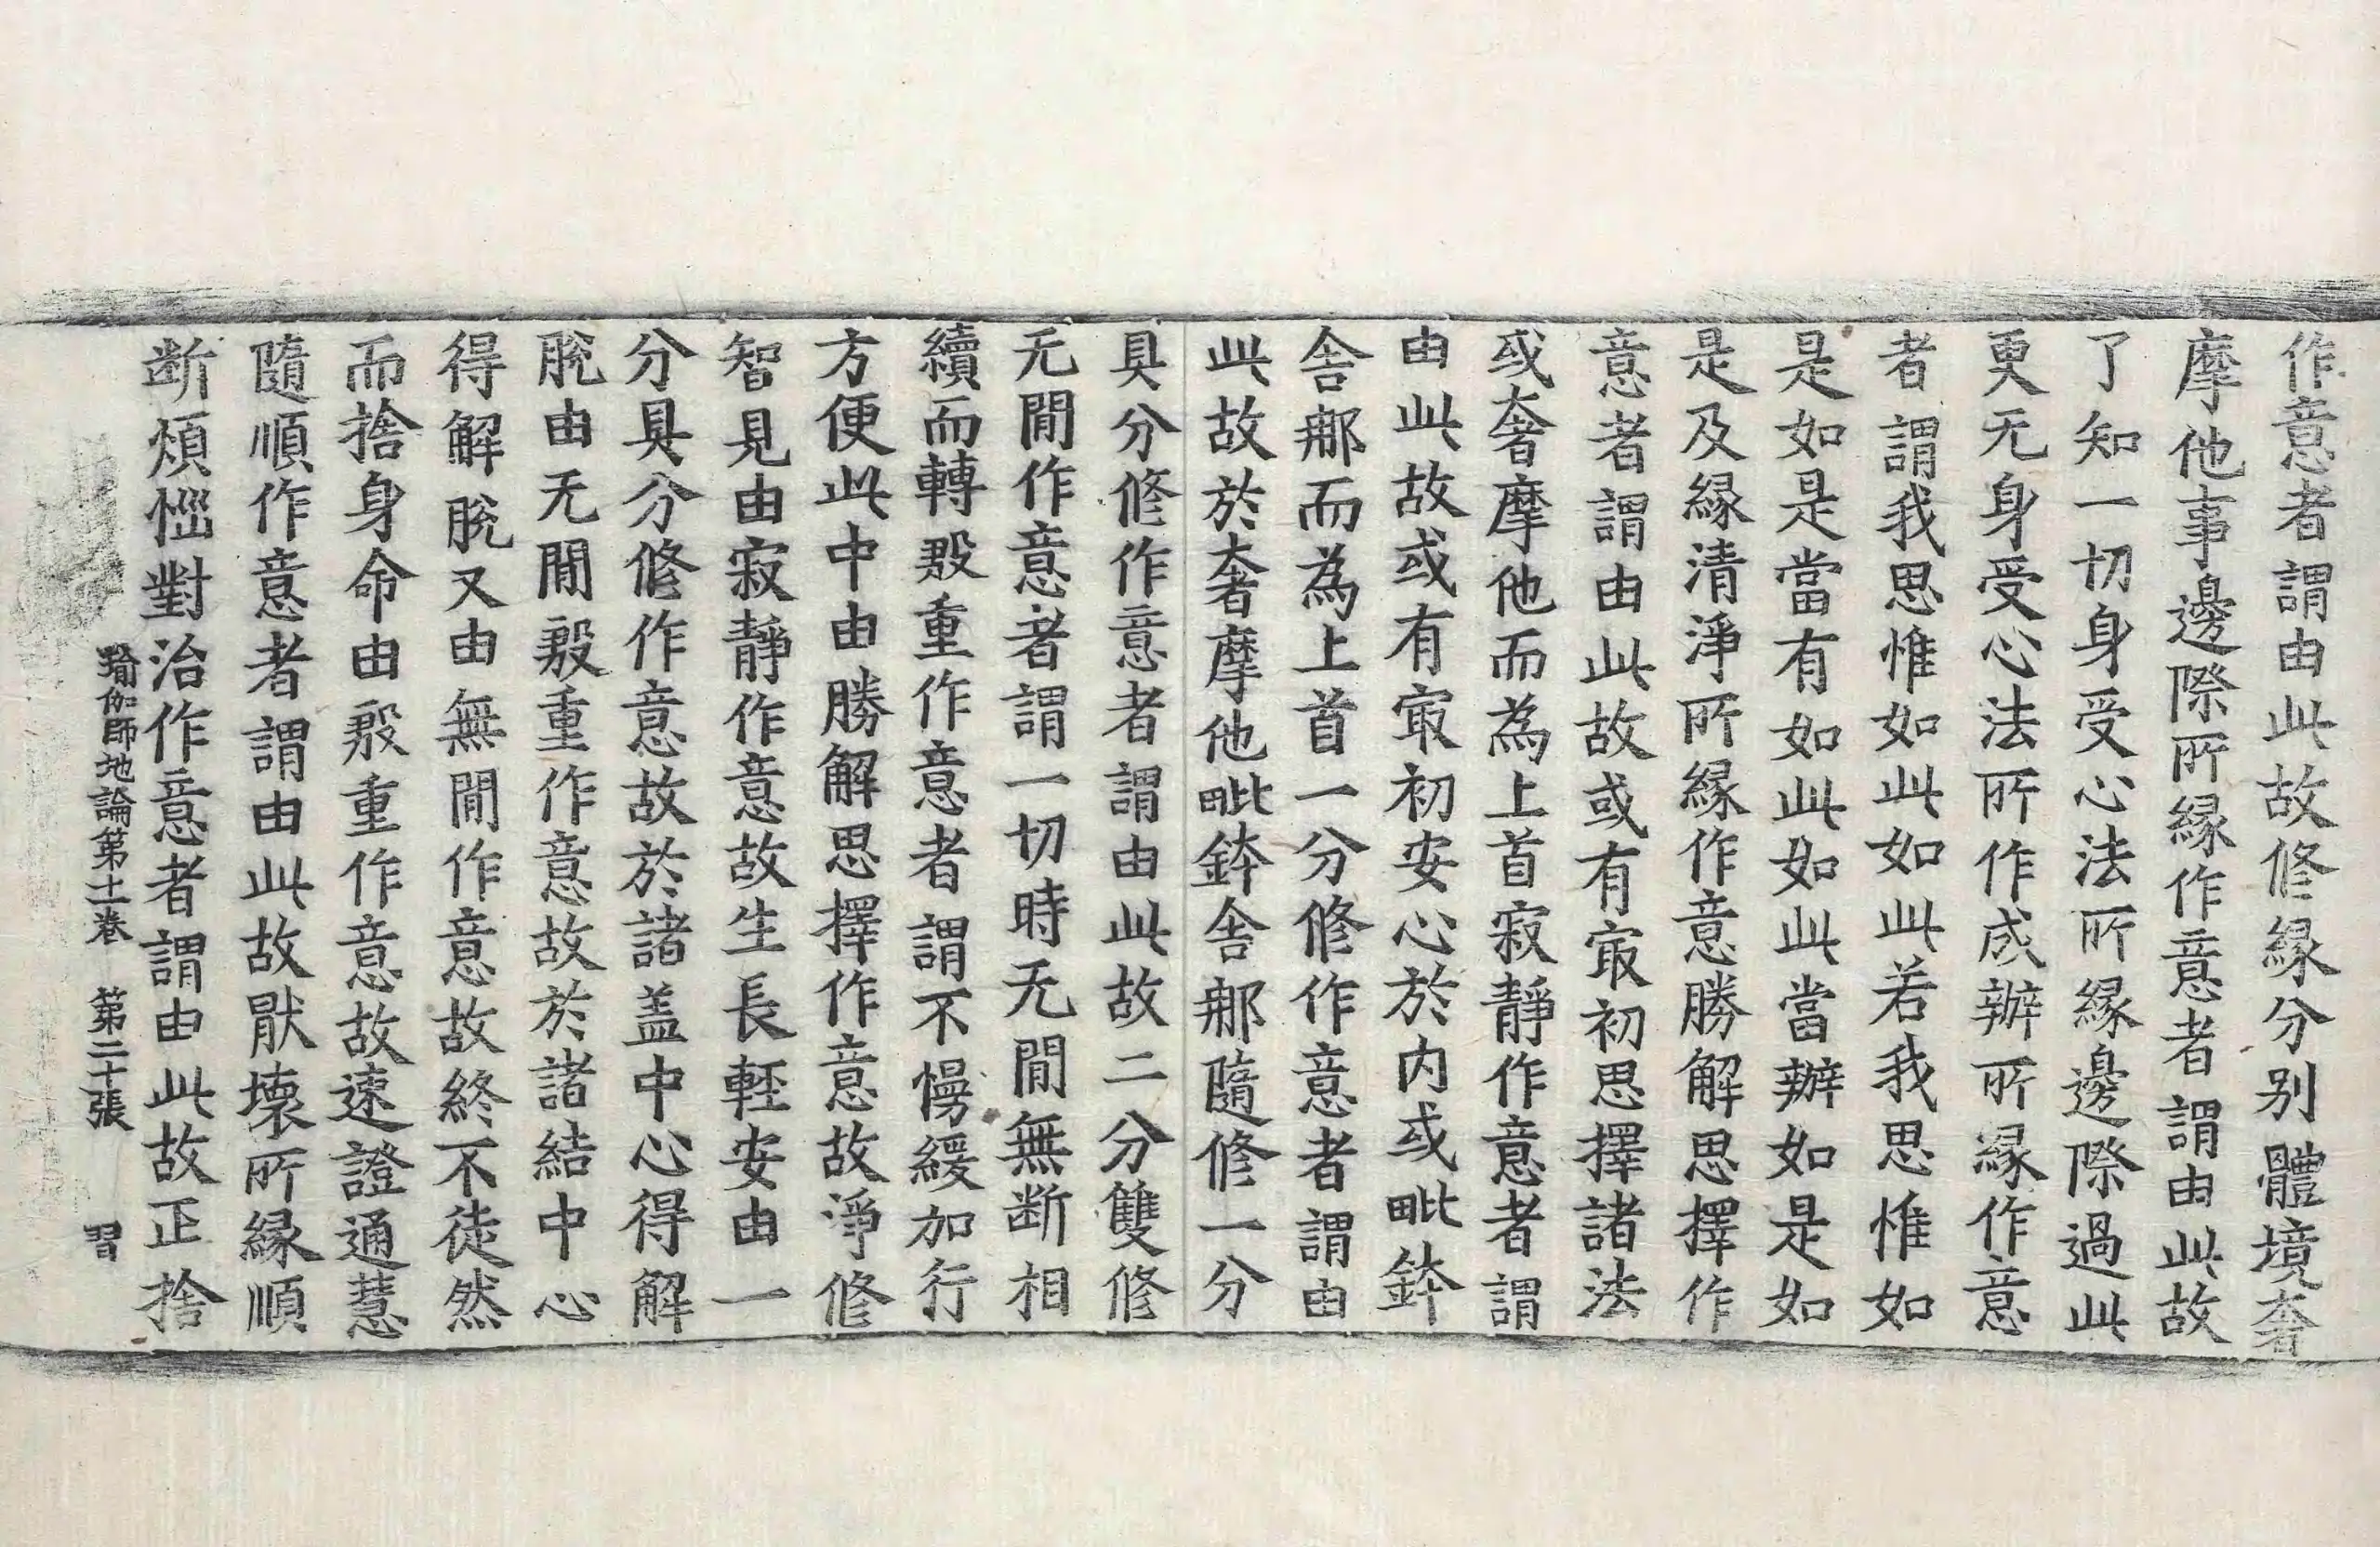 作意者謂由此故修緣分別體境奢
摩他事邊際所緣作意者謂由此故
了知一切身受心法所緣邊際過此
更无身受心法所作成辦所緣作意
者謂我思惟如此如此若我思惟如
是如是當有如此如此當辦如是如
是及緣清淨所緣作意勝解思擇作
意者謂由此故或有㝡初思擇諸法
或奢摩他而為上首寂靜作意者謂
由此故或有㝡初安心於內或毗鉢
舍那而為上首一分修作意者謂由
此故於奢摩他毗鉢舍那隨修一分
具分修作意者謂由此故二分雙修
无間作意者謂一切時无間無断相
續而轉殷重作意者謂不慢緩加行
方便此中由勝解思擇作意故淨修
智見由寂靜作意故生長輕安由一
分具分修作意故於諸盖中心得解
脫由无間殷重作意故於諸結中心
得解脫又由無間作意故終不徒然
而捨身命由殷重作意故速證通慧
隨順作意者謂由此故猒壞所緣順
断煩惱對治作意者謂由此故正捨
瑜伽師地論第十一卷　第二十張　習